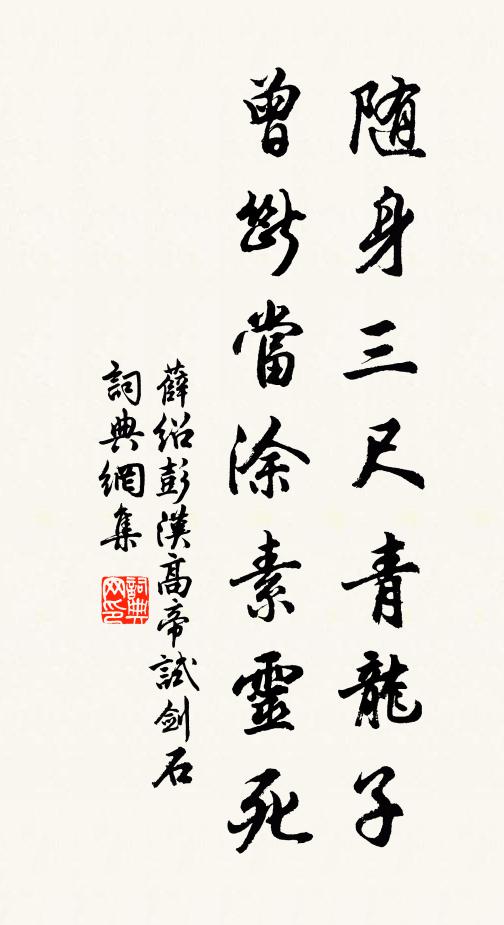 随身三尺青龍子
曾斷當涂素靈死
薛紹彭漢高帝試劍石
詞典網集
詞典网印